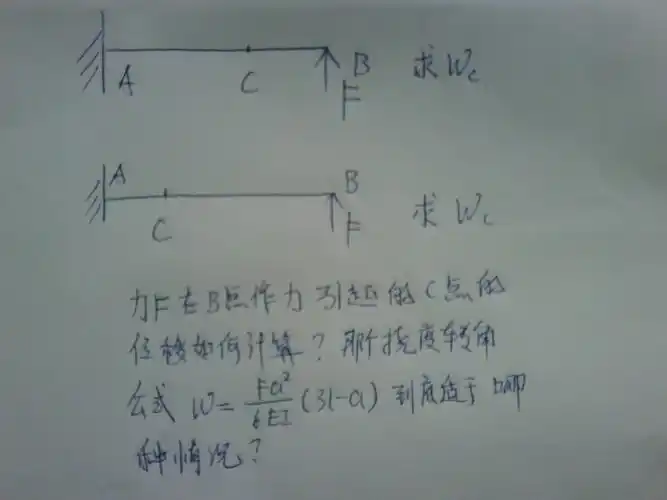 A C B F 求 Wc
A C B F 求 Wc
力F在B点作力引起的C点的
位移如何计算？那个挠度转角
公式 W=Fa²/6EI(3l-a) 到底适于哪
种情况？